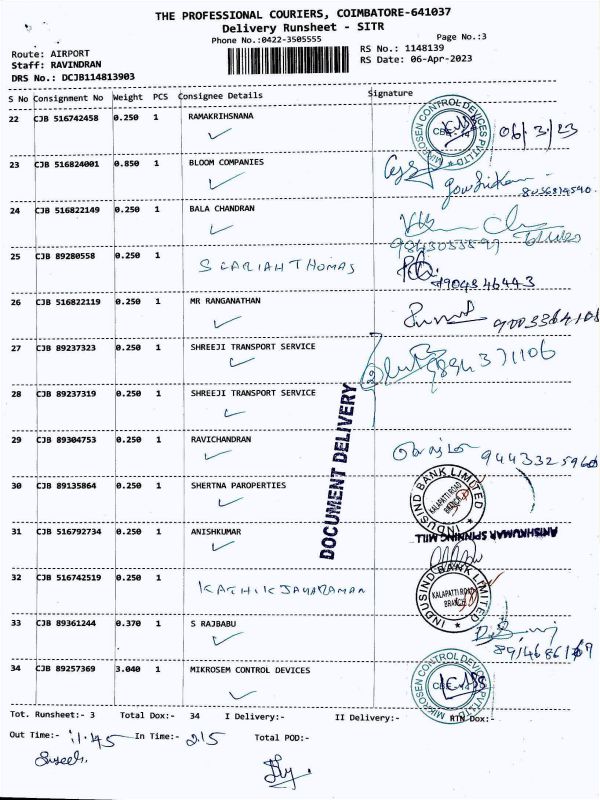 THE PROFESSIONAL COURIERS, COIMBATORE-641037
Delivery Runsheet - SITR
Phone No.:0422-3505555
Page No.:3
Route: AIRPORT
RS No.: 1148139
Staff: RAVINDRAN
RS Date: 06-Apr-2023
DRS No.: DCJB114813903
S No Consignment No Weight PCS Consignee Details Signature
22 CJB 516742458 0.250 1 RAMAKRIHSNANA
MIKROSEN CONTROL DEVICES PVT LTD
CBE - 14
06/3/23
23 CJB 516824001 0.850 1 BLOOM COMPANIES
24 CJB 516822149 0.250 1 BALA CHANDRAN
25 CJB 89280558 0.250 1
SCARIAH THOMAS
26 CJB 516822119 0.250 1 MR RANGANATHAN
27 CJB 89237323 0.250 1 SHREEJI TRANSPORT SERVICE
28 CJB 89237319 0.250 1 SHREEJI TRANSPORT SERVICE
DOCUMENT DELIVERY
29 CJB 89304753 0.250 1 RAVICHANDRAN
30 CJB 89135864 0.250 1 SHERTNA PAROPERTIES
INDUSIND BANK LIMITED
KALAPATTI ROAD
BRANCH
31 CJB 516792734 0.250 1 ANISHKUMAR
ANISHKUMAR SPINNING MILL
32 CJB 516742519 0.250 1
KATHIKJAYARAMAN
INDUSIND BANK LIMITED
KALAPATTI ROAD
BRANCH
33 CJB 89361244 0.370 1 S RAJBABU
34 CJB 89257369 3.040 1 MIKROSEM CONTROL DEVICES
MIKROSEN CONTROL DEVICES PVT LTD
Tot. Runsheet:- 3 Total Dox:- 34 I Delivery:- II Delivery:- RTN Dox:-
Out Time:- 11.45 In Time:- 2.15 Total POD:-